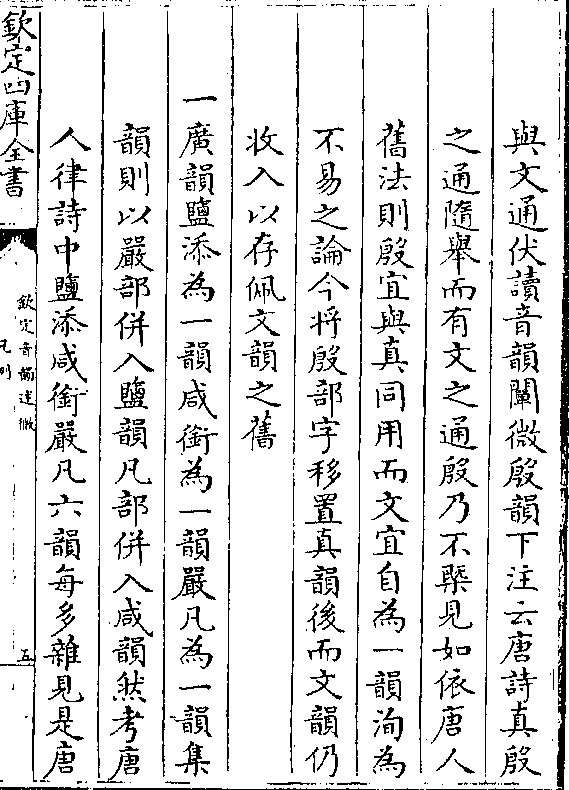 與文通伏讀音韻闡微殷韻下注云唐詩真殷
之通隨舉而有文之通殷乃不槩見如依唐人
舊法則殷宜與真同用而文宜自為一韻洵為
不易之論今將殷部字移置真韻後而文韻仍
收入以存佩文韻之舊
一廣韻鹽添為一韻咸銜為一韻嚴凡為一韻集
韻則以嚴部併入鹽韻凡部併入咸韻然考唐
人律詩中鹽添咸銜嚴凡六韻每多雜見是唐
欽定四庫全書
欽定音韻述微
凡例
五